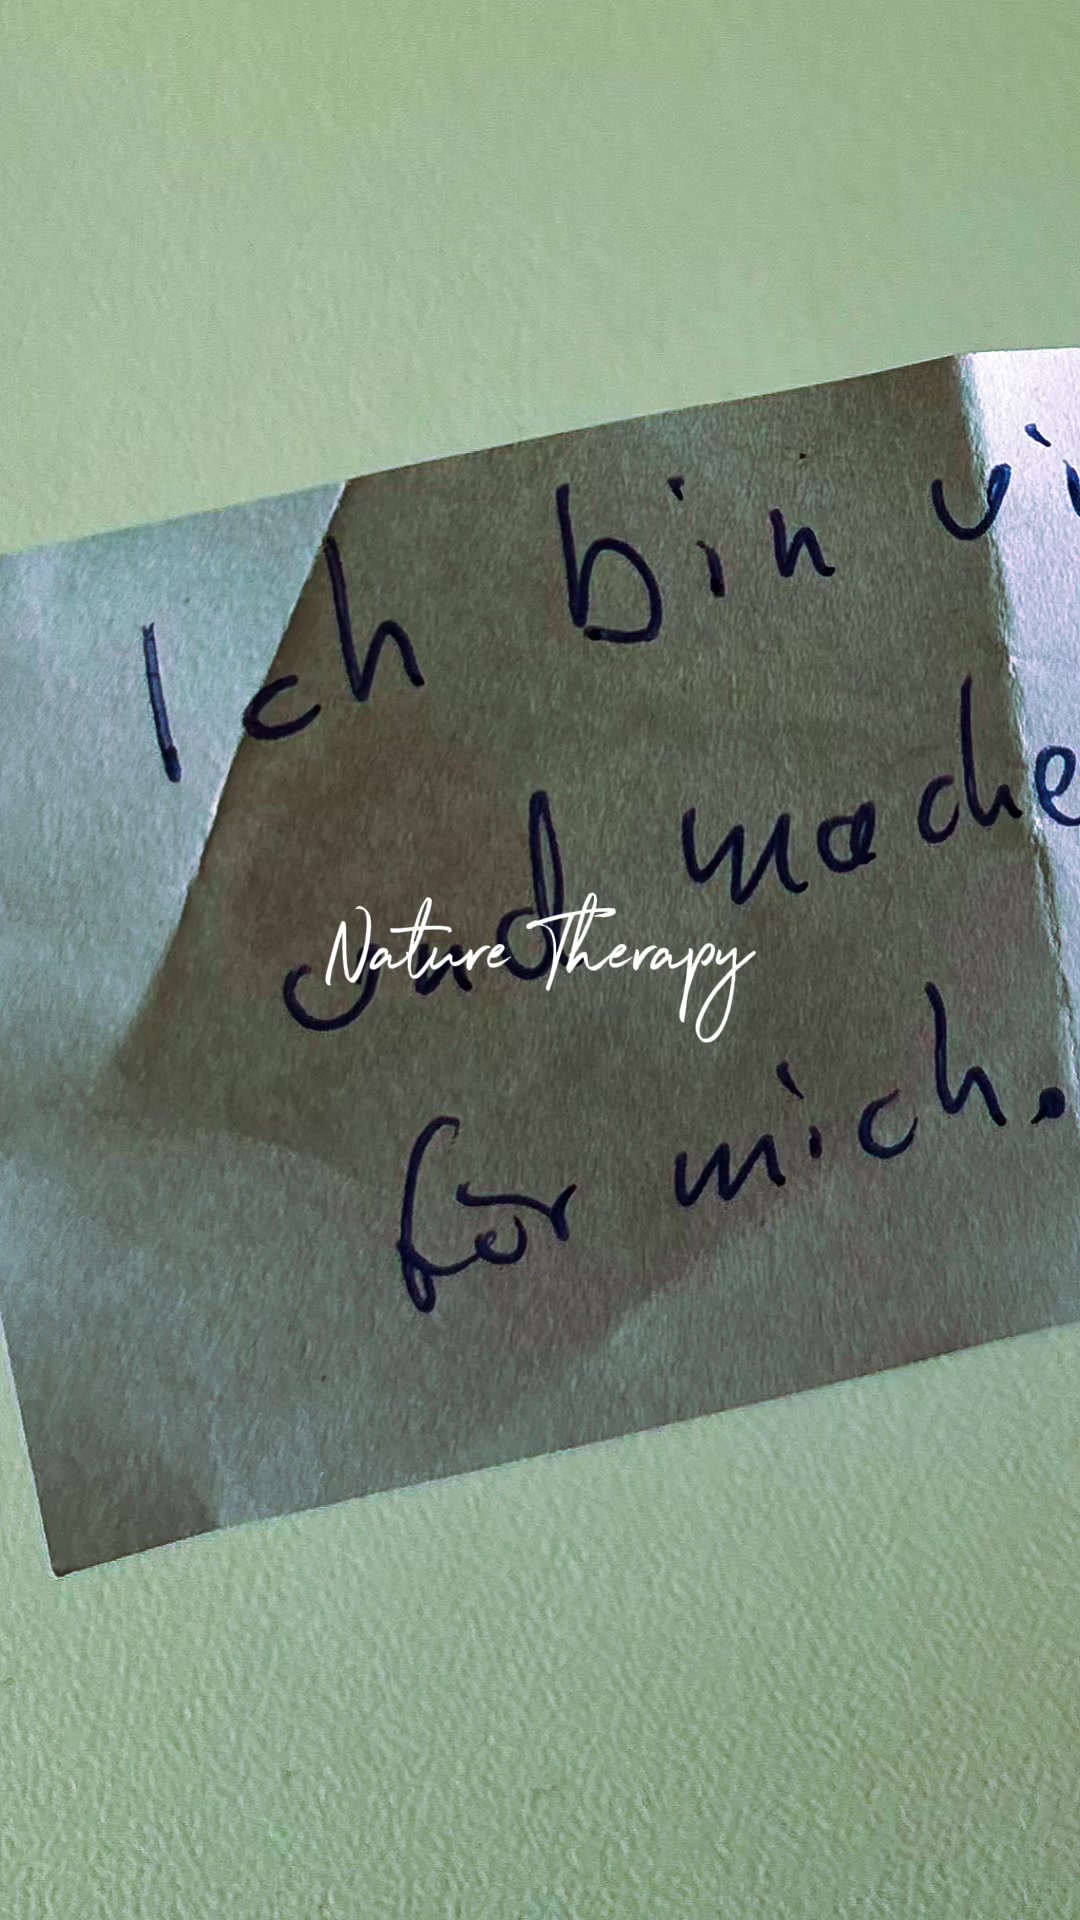 Ich bin
und mache
Nature Therapy
für mich.